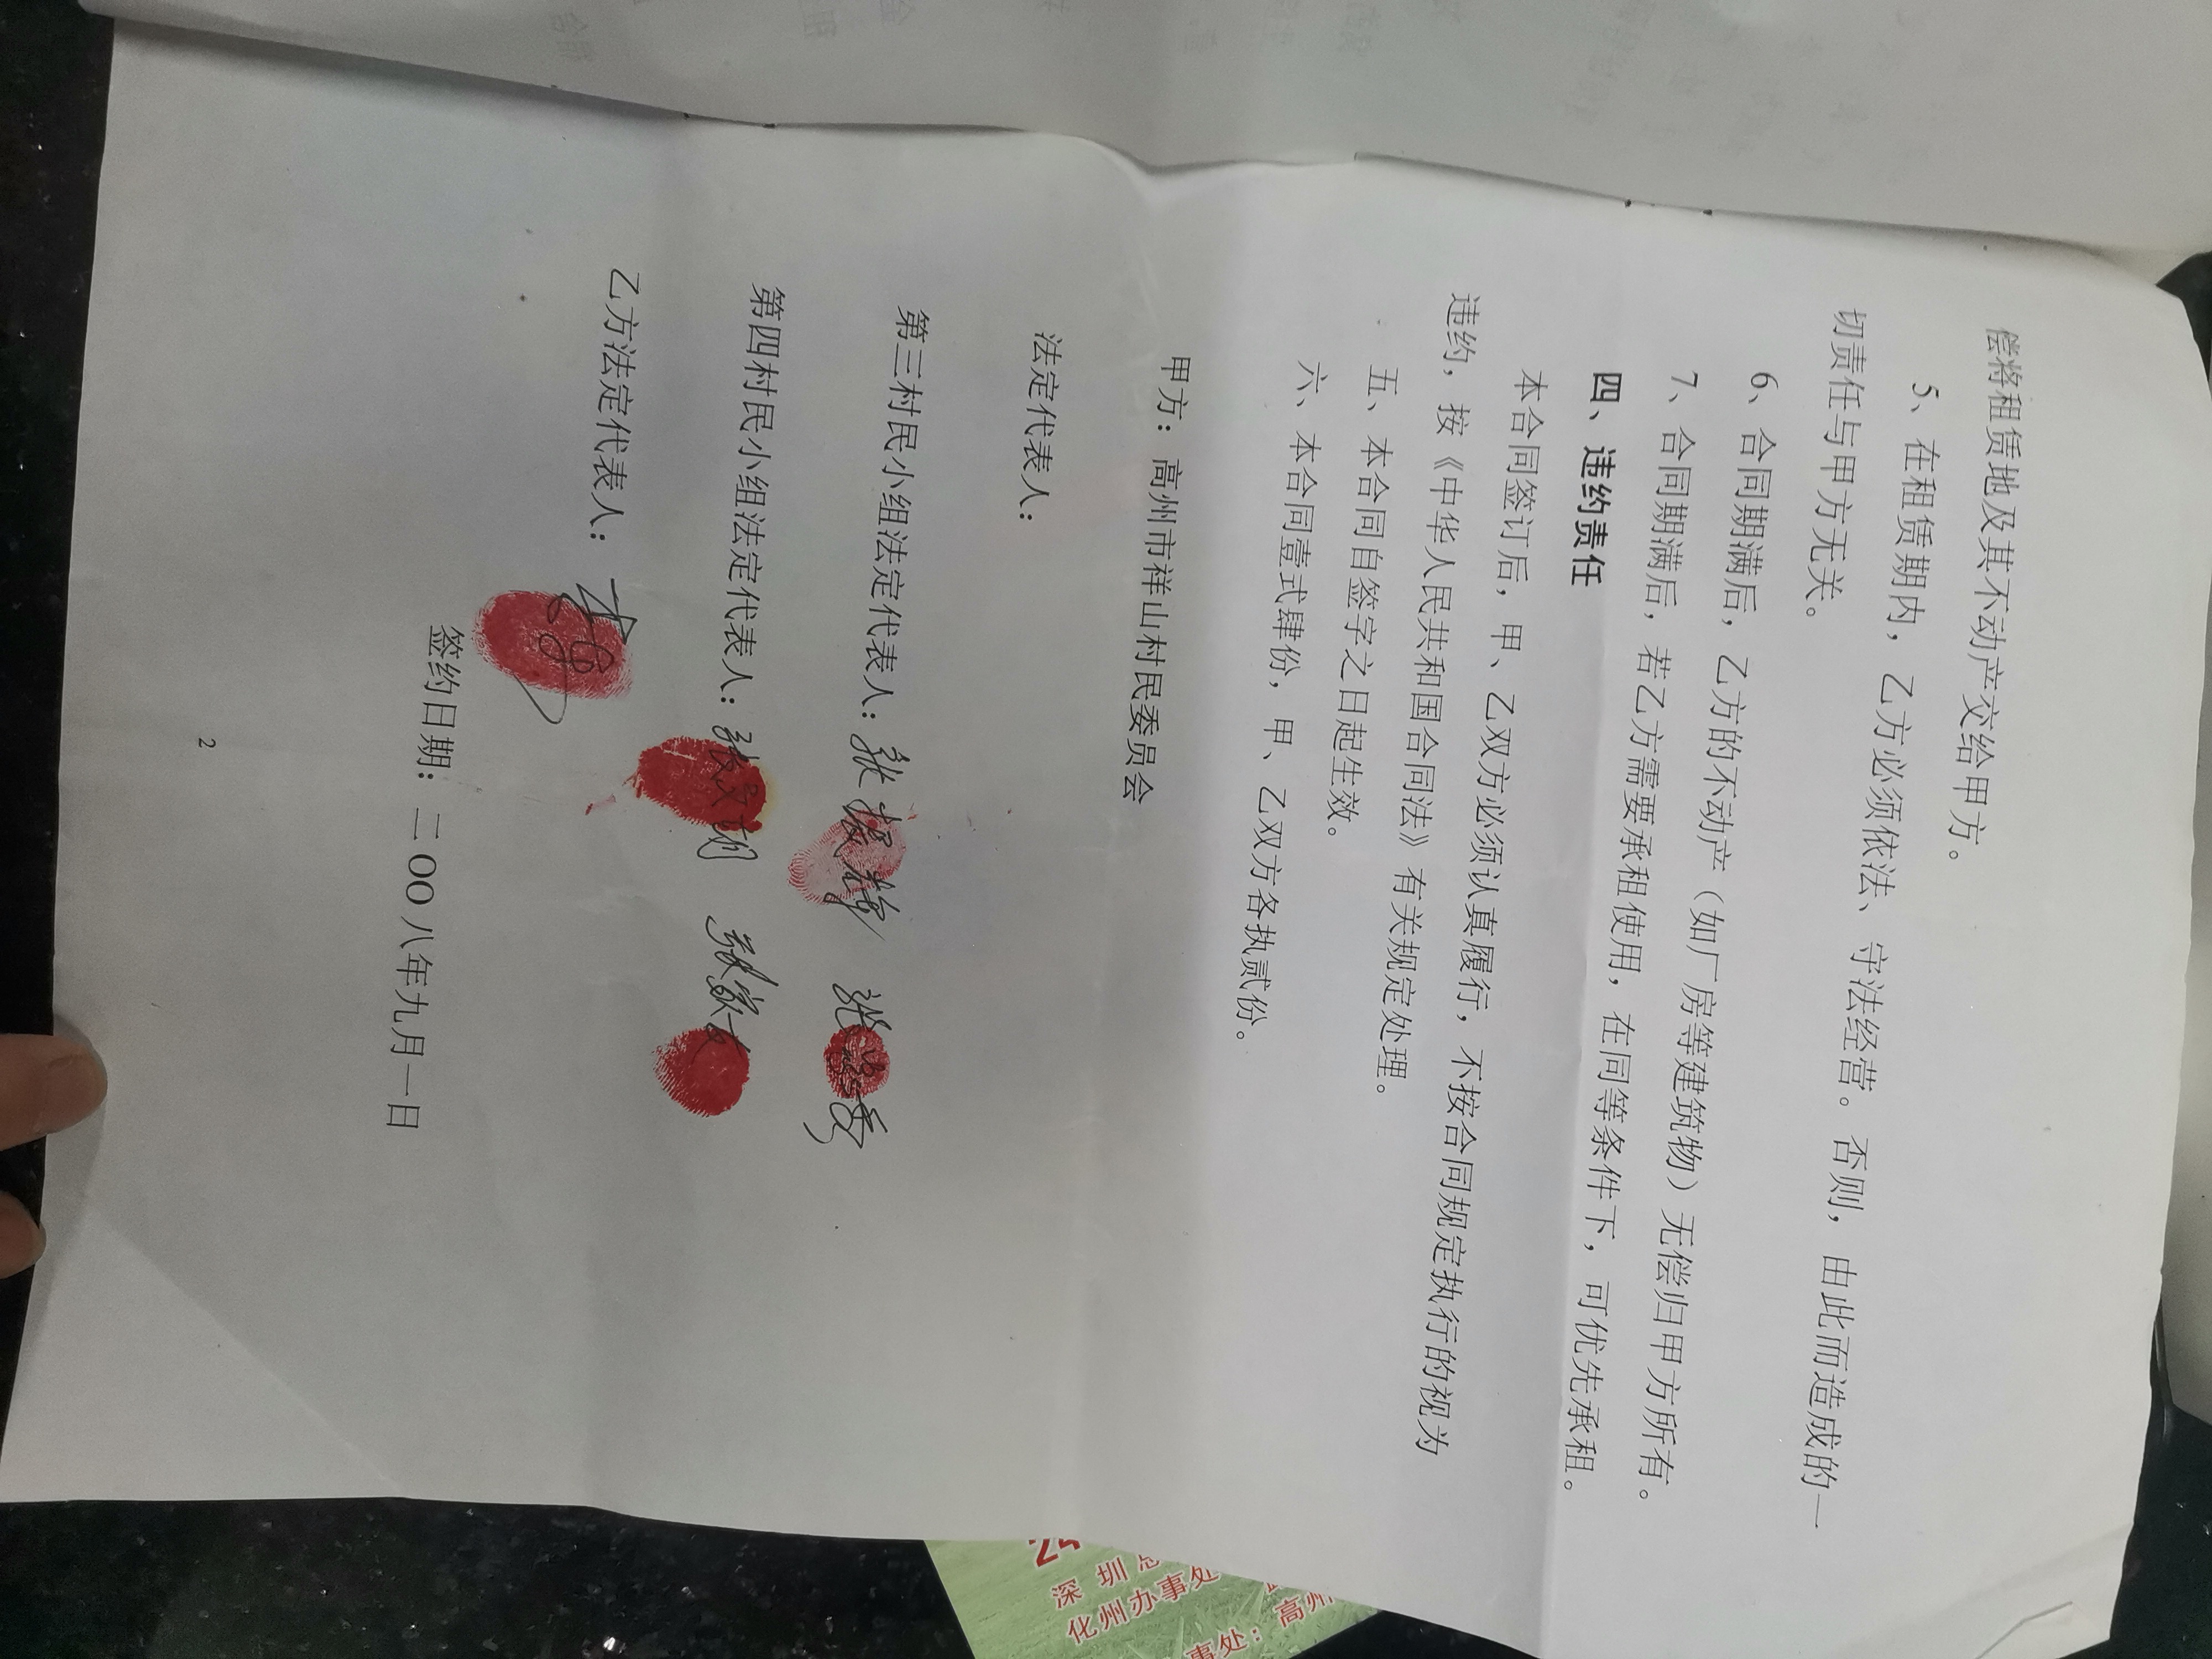 偿将租赁地及其不动产交给甲方。
5、在租赁期内，乙方必须依法、守法经营。否则，由此而造成的一
切责任与甲方无关。
6、合同期满后，乙方的不动产（如厂房等建筑物）无偿归甲方所有。
7、合同期满后，若乙方需要承租使用，在同等条件下，可优先承租。
四、违约责任
本合同签订后，甲、乙双方必须认真履行，不按合同规定执行的视为
违约，按《中华人民共和国合同法》有关规定处理。
五、本合同自签字之日起生效。
六、本合同壹式肆份，甲、乙双方各执贰份。
甲方：高州市祥山村民委员会
法定代表人：
第三村民小组法定代表人：张 张
第四村民小组法定代表人：张 张
乙方法定代表人：
签约日期：二OO八年九月一日
2
深圳总
化州办事处
事处：高州